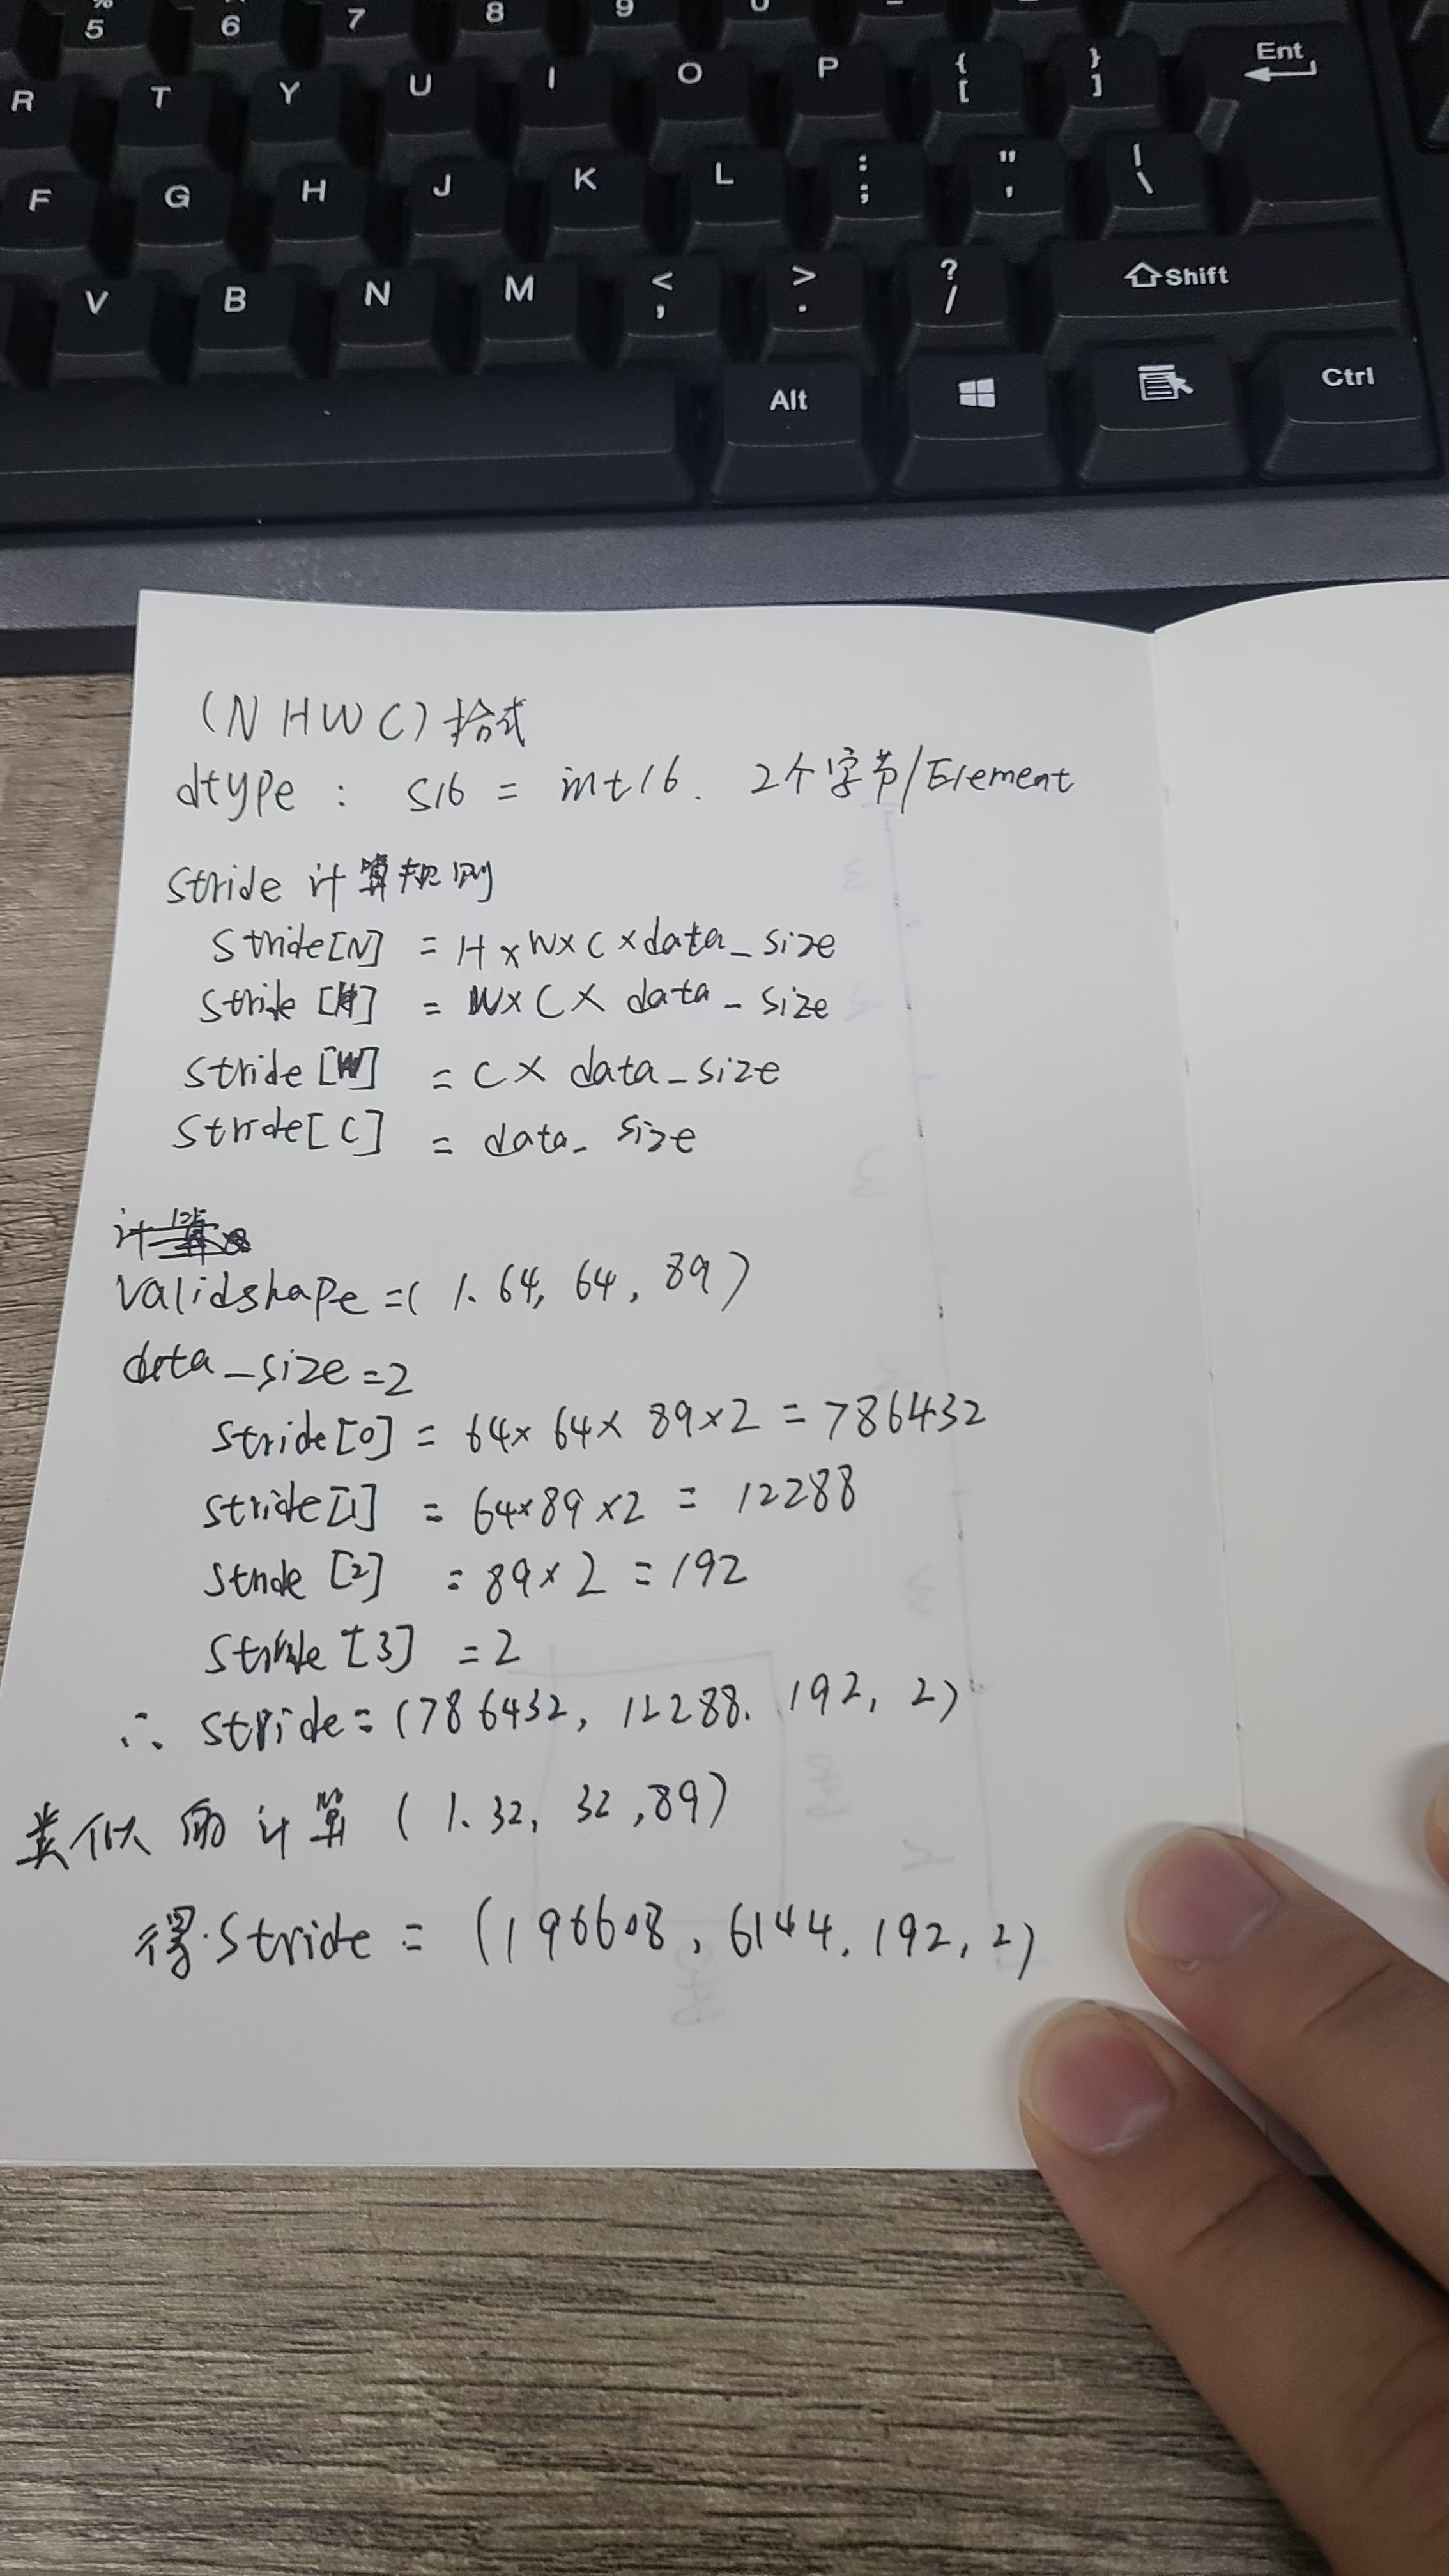 % 5 ^ 6 7 8 9
R T Y U I O P { [ } ] Ent
F G H J K L : ; " ' | \
V B N M < , > . ? / Shift
Alt Ctrl
(NHWC)格式
dtype : S16 = int16. 2个字节/Element
Stride 计算规则
Stride[N] = H×W×C×data_size
Stride [H] = W×C× data_size
Stride [W] = C× data_size
Stride[C] = data_size
validshape=(1.64, 64, 89)
data_size=2
Stride[0] = 64×64×89×2=786432
Stride[1] = 64×89×2 = 12288
Stride [2] = 89×2=192
Stride [3] =2
∴ Stride=(786432, 12288. 192, 2)
类似的计算(1.32, 32,89)
得.Stride = (196608, 6144. 192, 2)